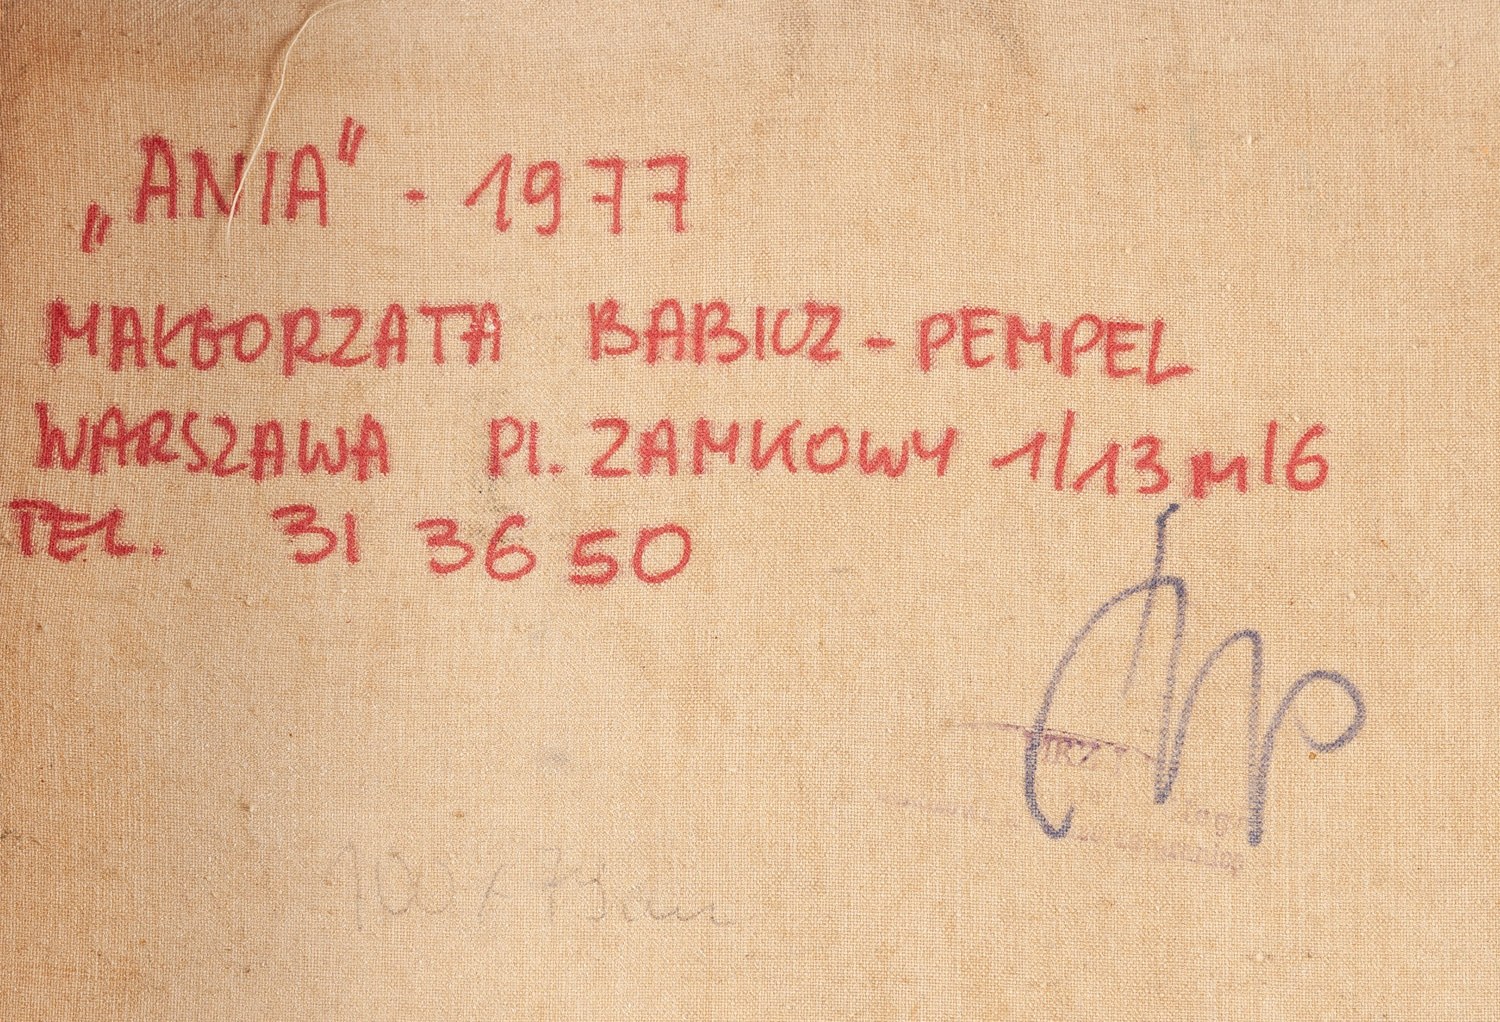 „ANIA” - 1977
MAŁGORZATA BABICZ - PEMPEL
WARSZAWA Pl. ZAMKOWY 1/13 m 16
TEL. 31 36 50